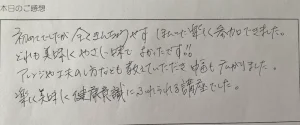 本日のご感想
初めてでしたが全くきんちょうせず ほんとに楽しく参加できました。
どれも美味しくやさしい味で よかったです!!
アレンジや工夫の仕方なども教えていただき 幅も広がりました。
楽しく美味しく健康意識にふれられる講座でした。